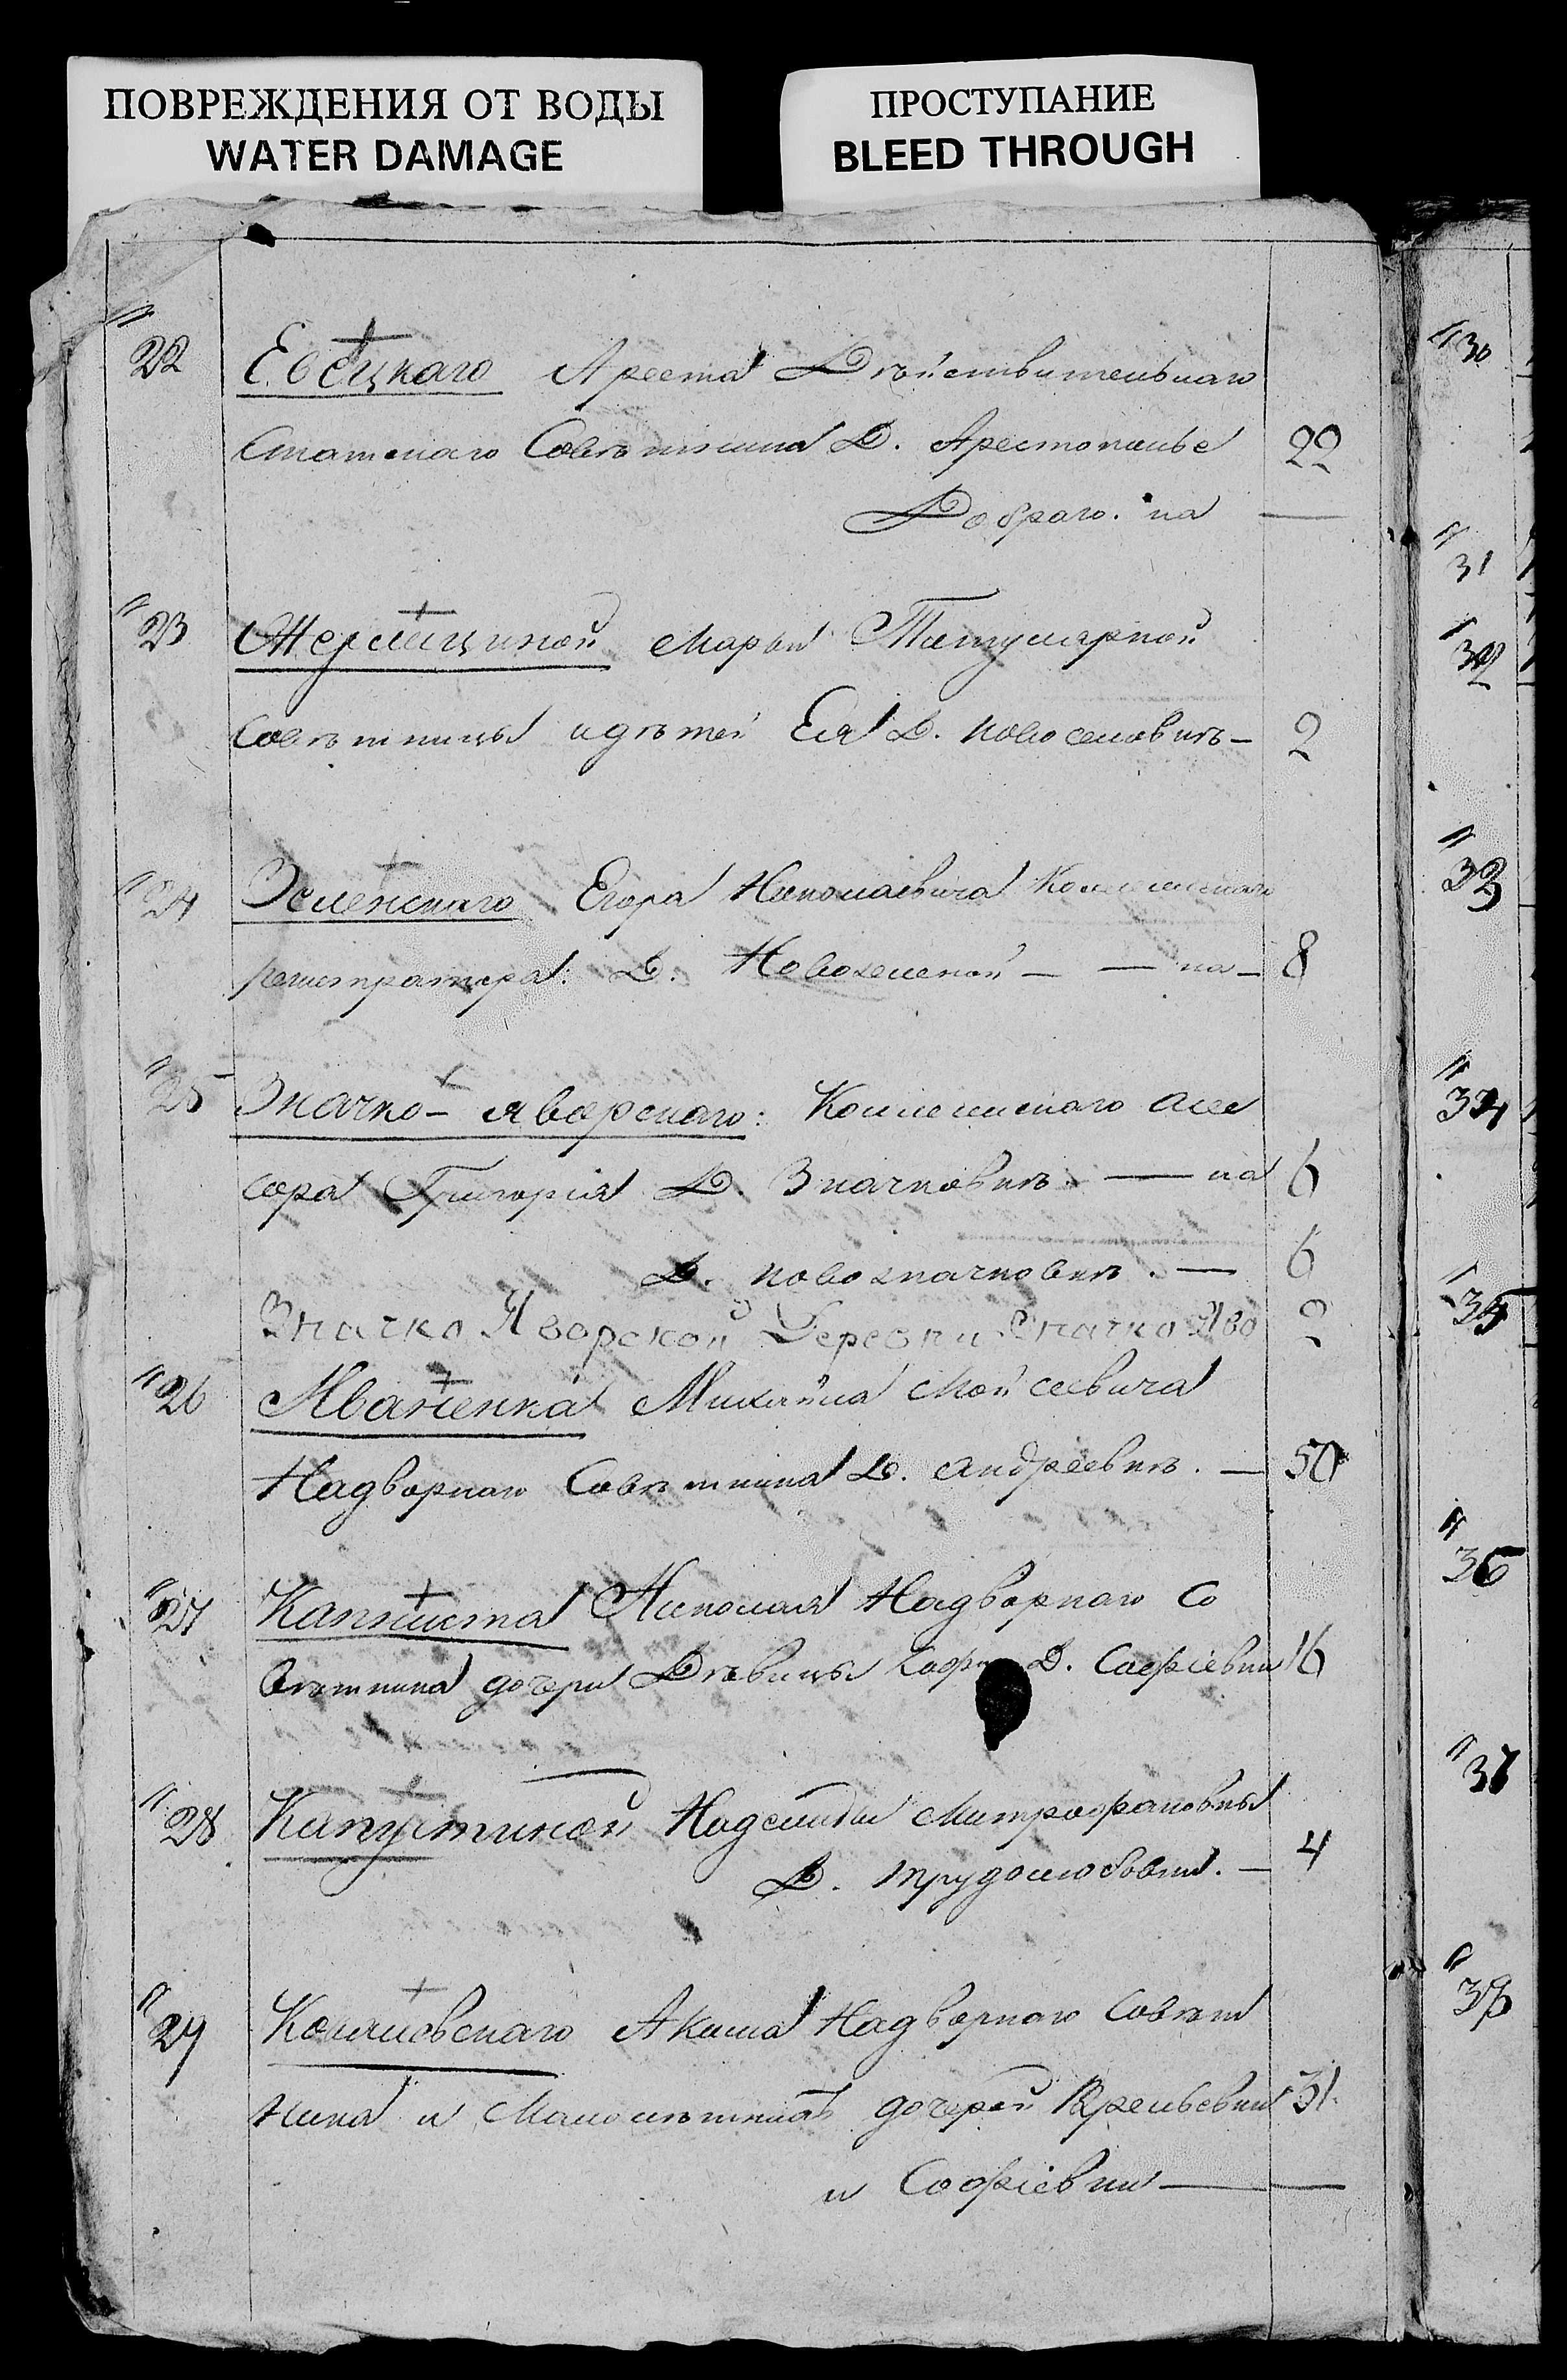 ПОВРЕЖДЕНИЯ ОТ ВОДЫ
WATER DAMAGE
ПРОСТУПАНИЕ
BLEED THROUGH
22 Евецкаго Ареста Дѣйствительнаго
Статскаго Совѣтника Д. Арестополье 22
Добраго. на —
23 Марьи Титулярной
Совѣтницы и дѣтей Ея Д. новоселовкѣ — 2
24 Зеленскаго Егора Николаевича Коллежскаго
регистратора: Д. Новозеленой — — на — 8
25 Значко-яворскаго: Коллежскаго асес
сора Григорія Д. Значковкѣ. — на 6
Д. новозначковкѣ. — 6
Значко Яворской Деревни Значко Яво 2
26 Иваненка Михайла Мойсеевича
Надворнаго Совѣтника Д. андреевкѣ. — 50
27 Капниста Николая Надворнаго Со
вѣтника дочери Дѣвицы Д. Софіевки 16
28 Капустиной Надежды Митрофановны
Д. трудолюбовки. — 4
29 Акима Надворнаго Совѣт
ника и Малолѣтнихъ дочерей 31.
и Софіевки —
30
31
32
33
34
35
36
37
38